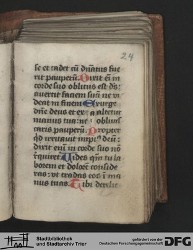 24
se et cadet cū dn̄atus fue
rit pauperū. Dixit eī in
corde suo oblitus est ds̄
auertit faciem suā ne vi
deat in finem Exurge
dn̄e deus et exaltetur
manus tua ne obliui
caris pauperū. Propter
qd̄ irritauit impi ds̄
dixit eī in corde suo nō
requiret Uides qm̄ tu la
borem et dolorē conside
ras ut tradas eos ī ma
nus tuas Tibi derelic
Stadtbibliothek
und Stadtarchiv Trier
gefördert von der
Deutschen Forschungsgemeinschaft
DFG